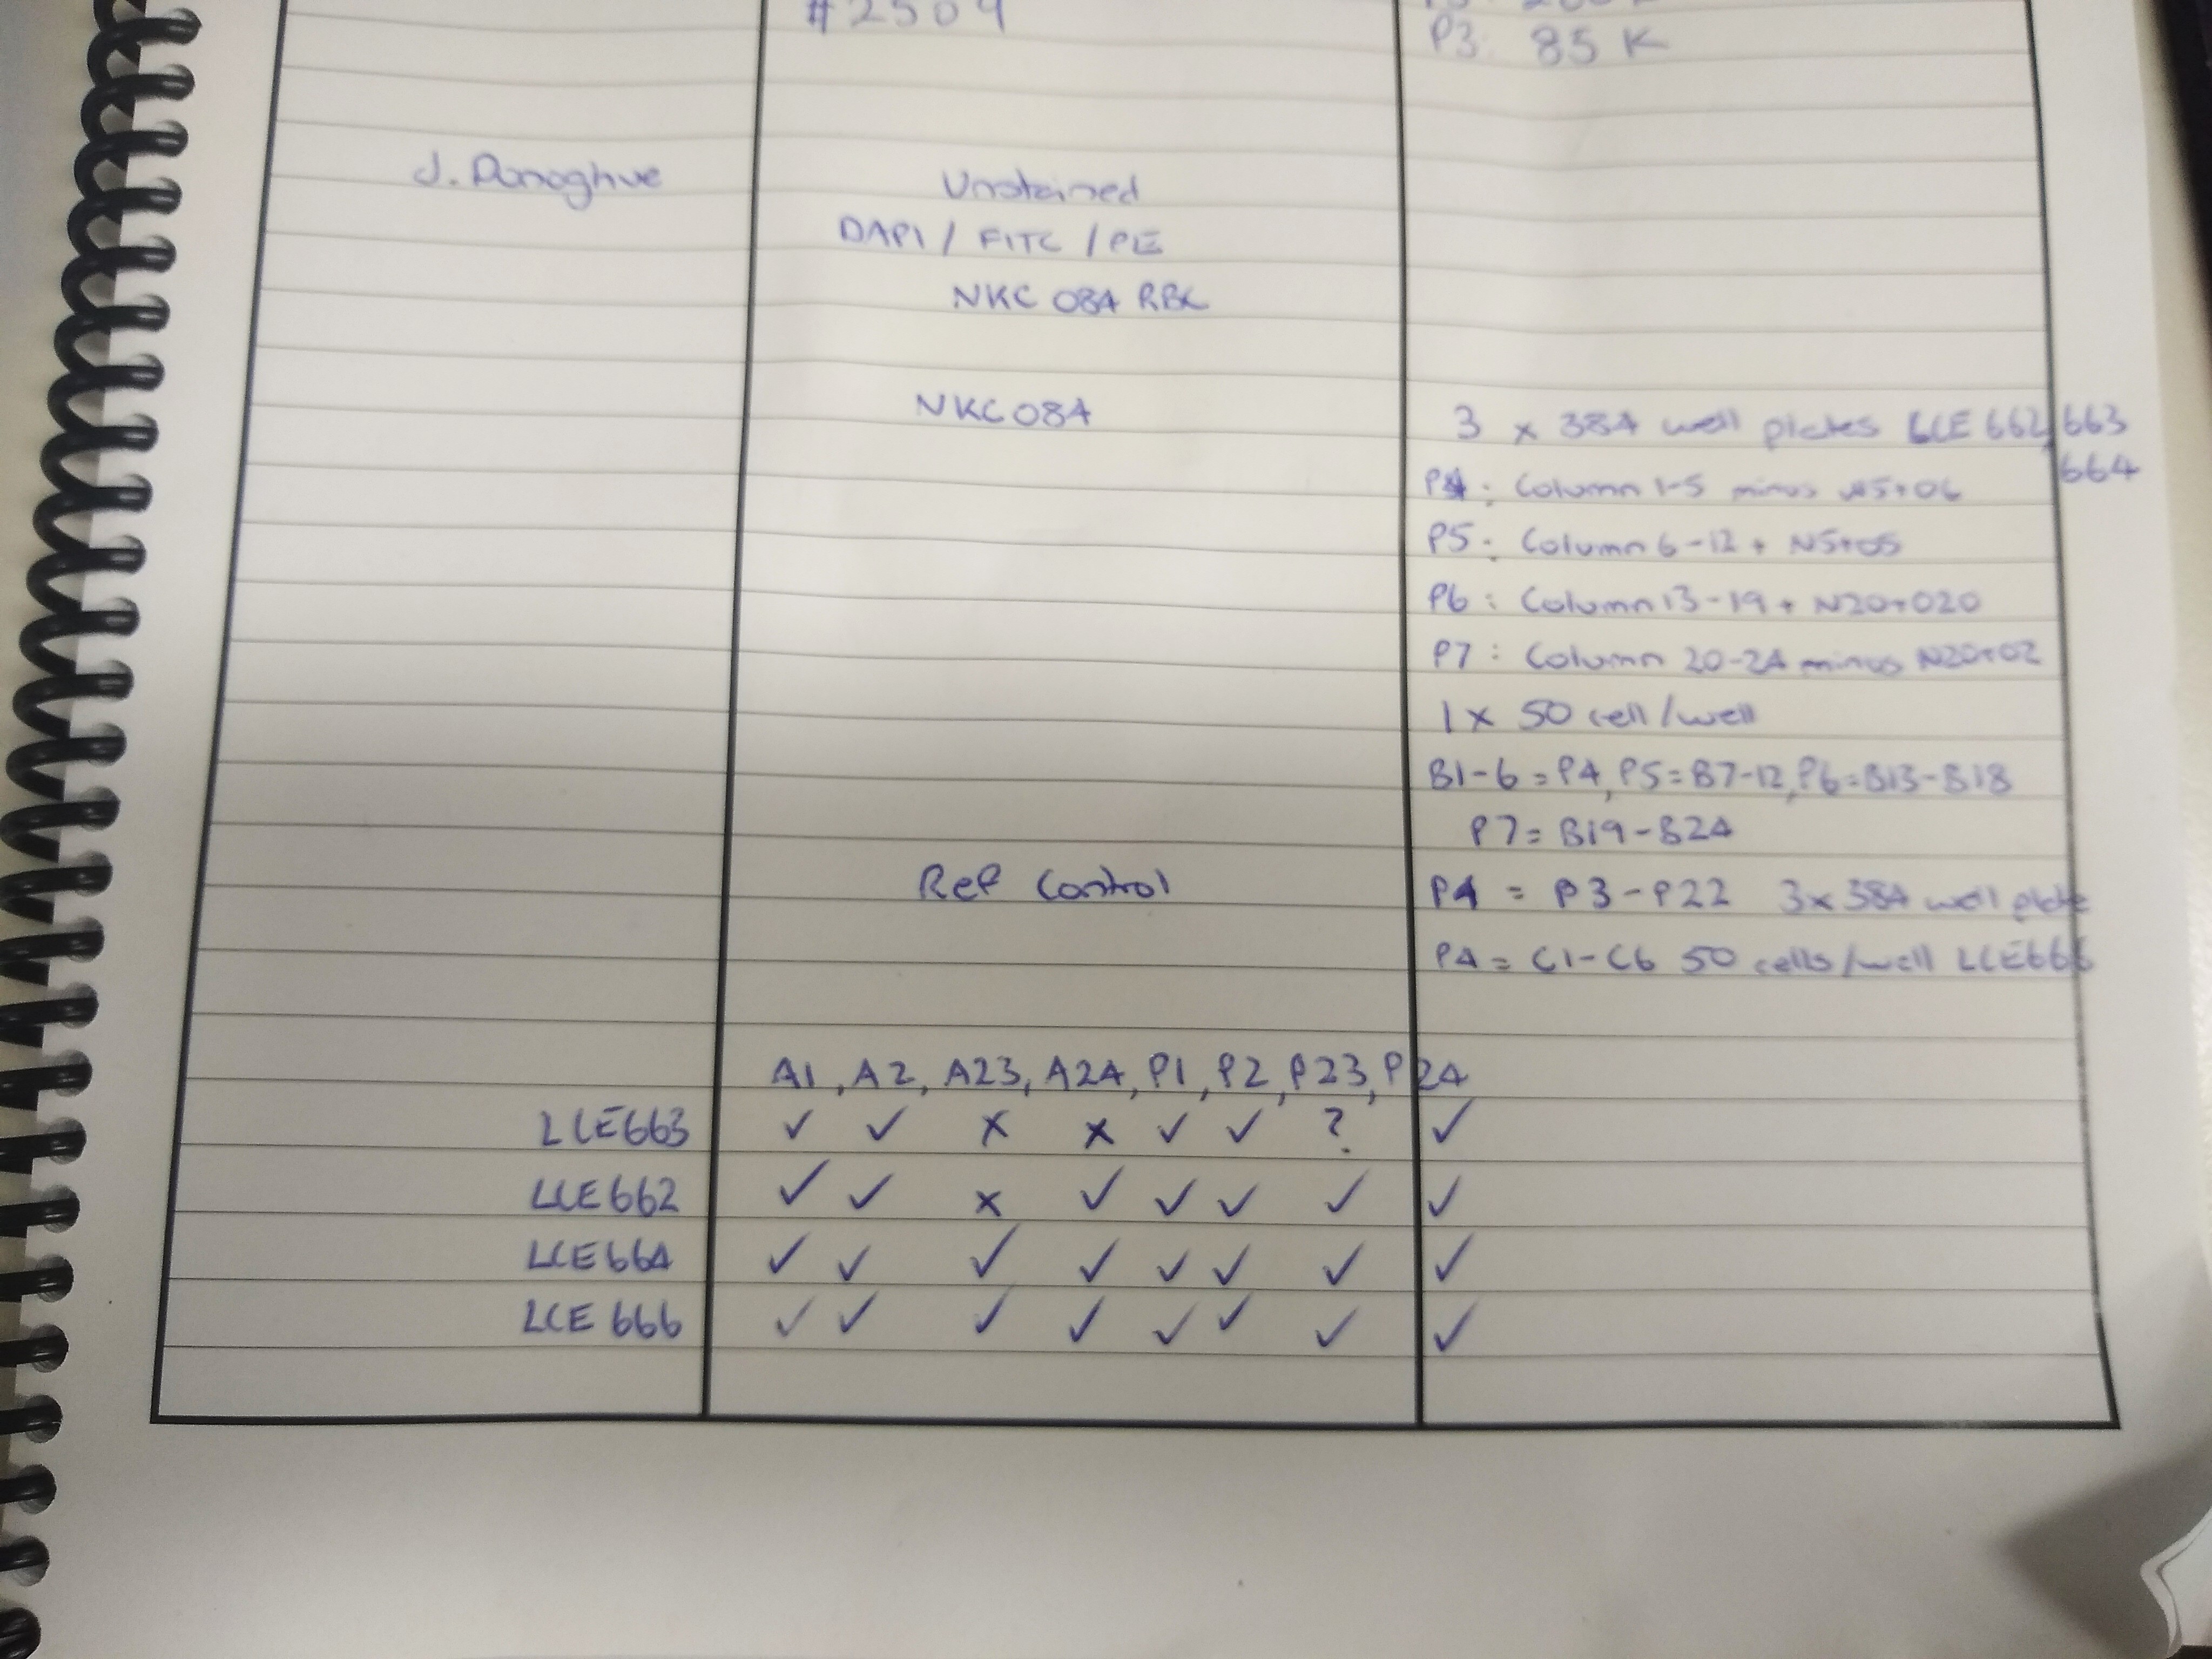 #2509
P3: 85K
J. Donoghue
Unstained
DAPI / FITC / PE
NKC 084 RBC
NKC084
3 x 384 well plates LCE 662, 663
664
P4: Column 1-5 minus
P5: Column 6-12 + N5+O5
P6: Column 13-19 + N20+O20
P7: Column 20-24 minus N20+O2
1 x 50 cell/well
B1-6 = P4, P5=B7-12, P6=B13-B18
P7= B19-B24
Ref Control
P4 = P3-P22 3x384 well plate
P4 = C1-C6 50 cells/well LCE666
A1, A2, A23, A24, P1, P2, P23, P24
LCE663 ✓ ✓ x x ✓ ✓ ? ✓
LCE662 ✓ ✓ x ✓ ✓ ✓ ✓ ✓
LCE664 ✓ ✓ ✓ ✓ ✓ ✓ ✓ ✓
LCE 666 ✓ ✓ ✓ ✓ ✓ ✓ ✓ ✓